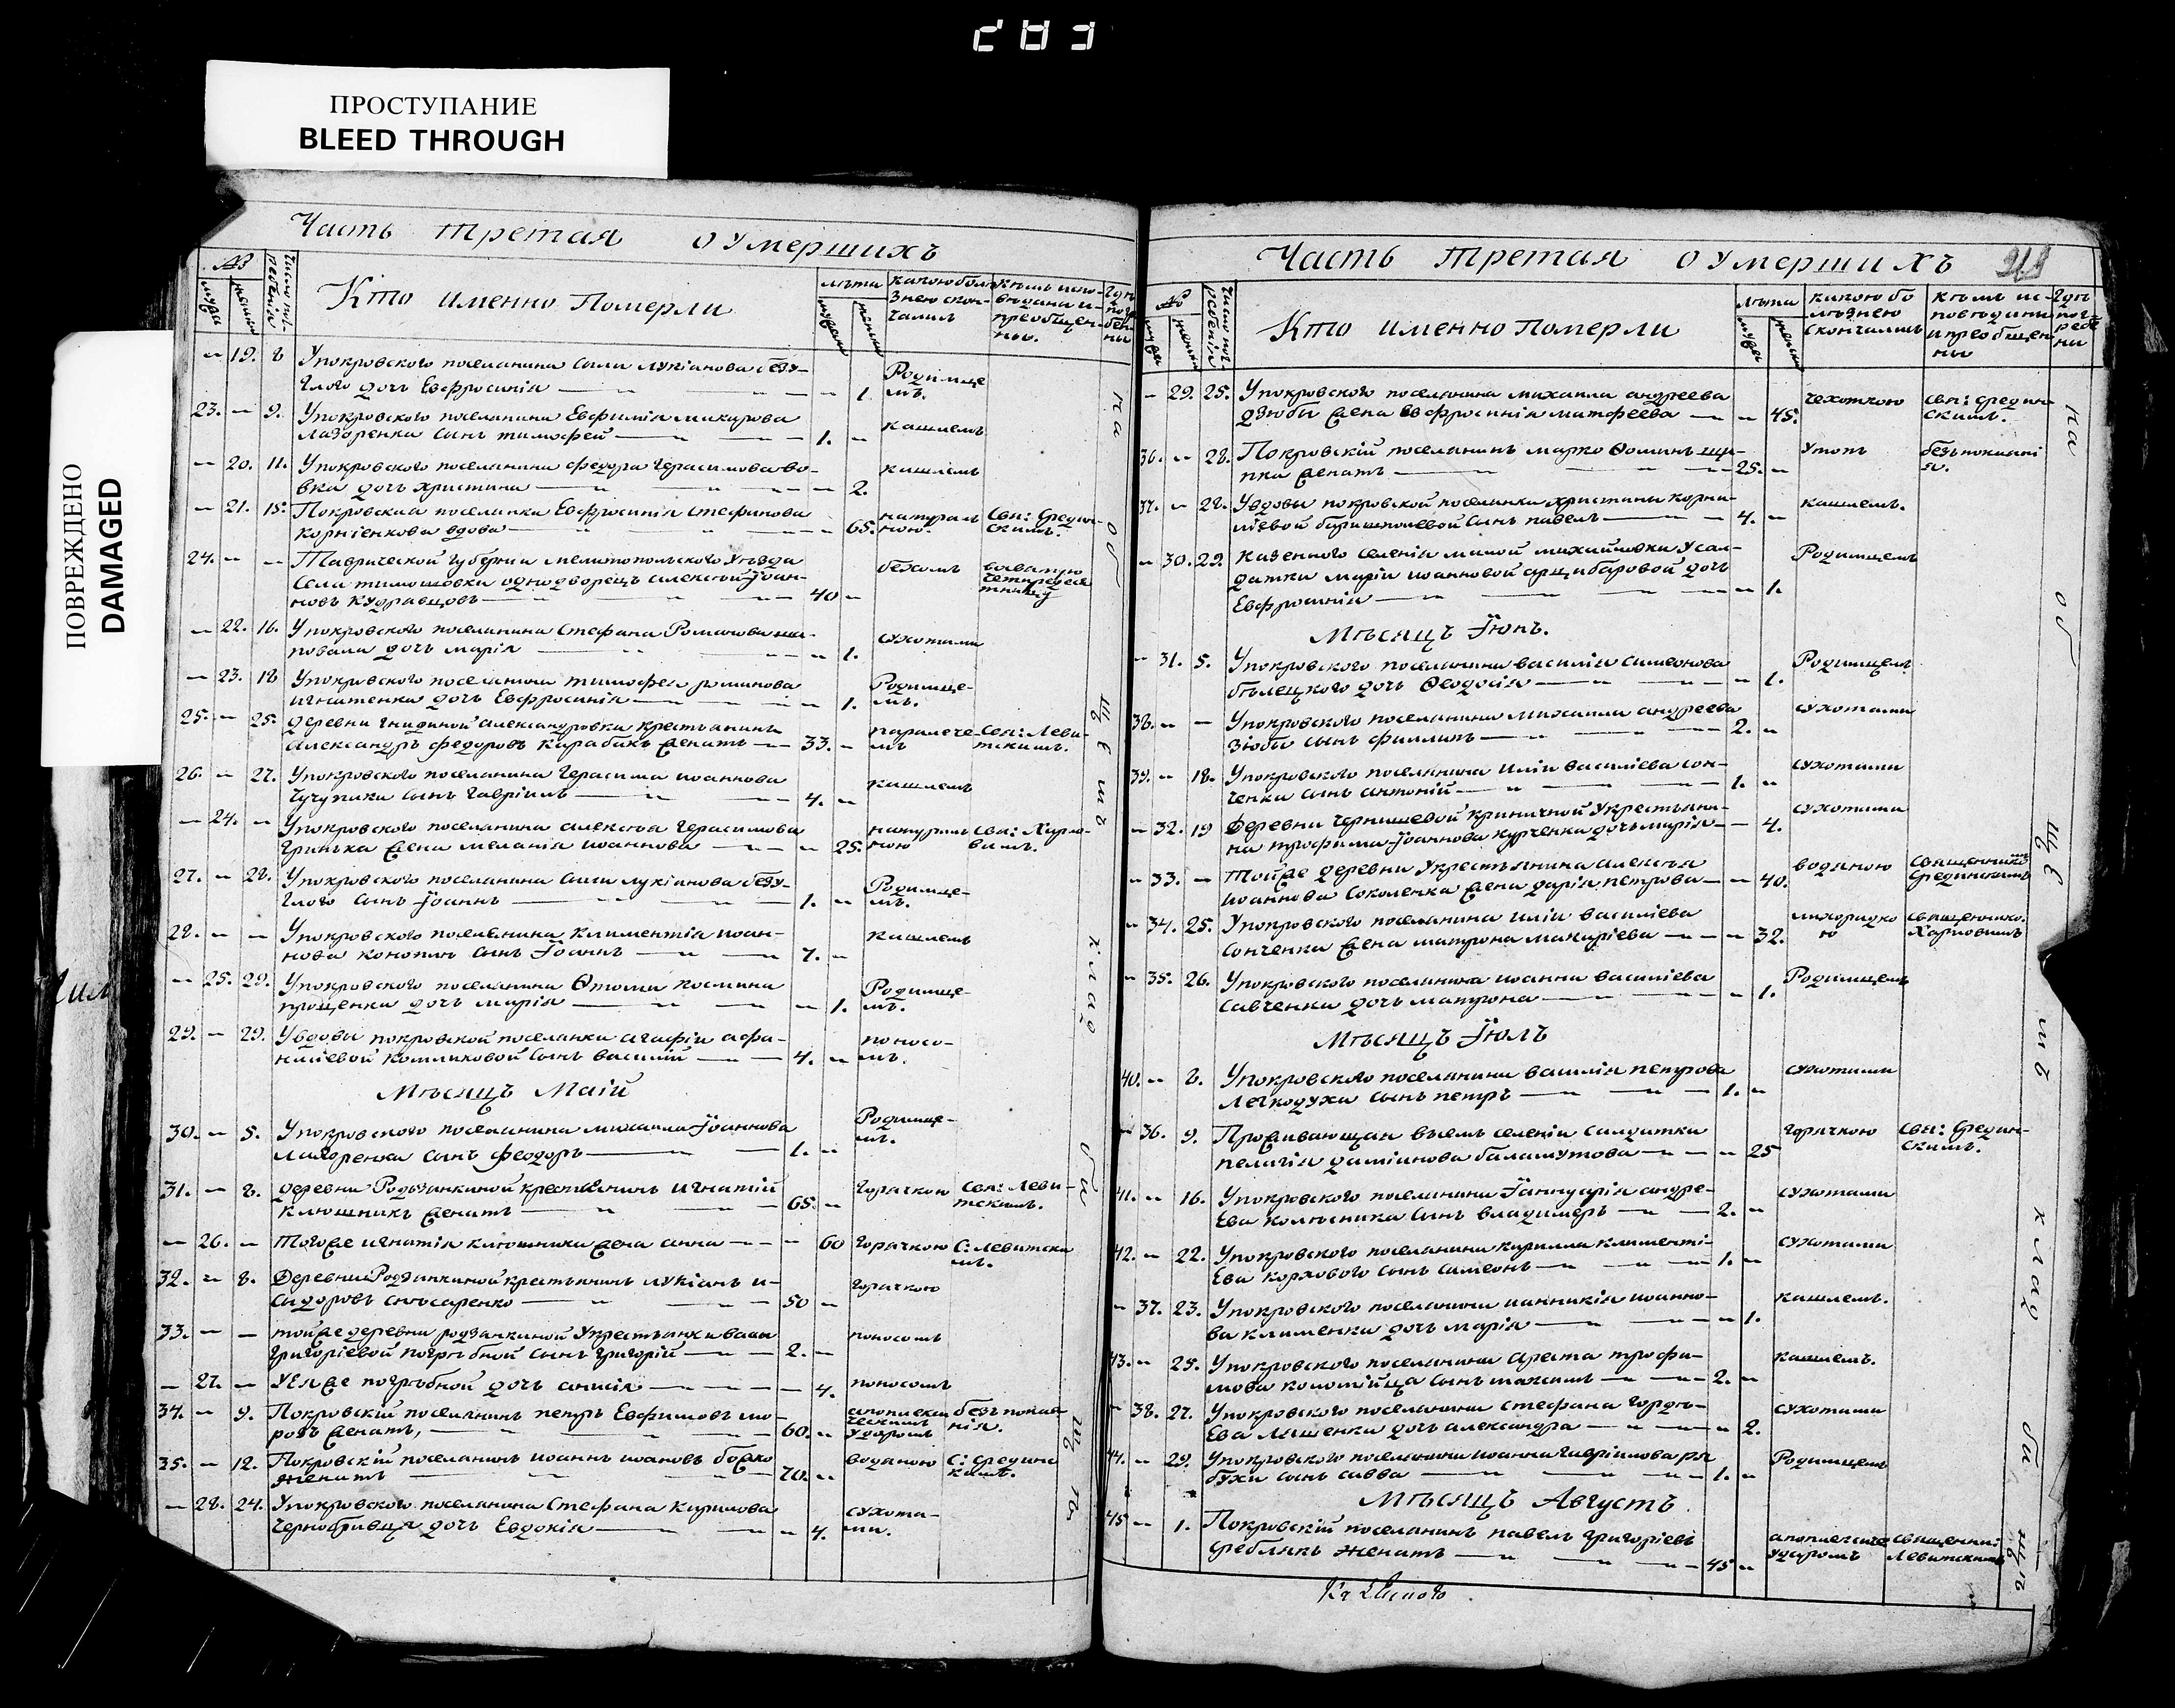 283
ПРОСТУПАНИЕ
BLEED THROUGH
ПОВРЕЖДЕНО
DAMAGED
Часть третая о умершихъ
№
мужес
женски
Число погребенія
Кто именно Померли
лѣта
какою болѣ-
знею скон-
чались
кѣмъ испо-
вѣданы и-
преобщен-
ны.
гдѣ
погре
бен
ны
— 19. 8 У покровского поселянина Силы лукіанова безу-
глого дочь Евфросинія — 1. Родимце-
мъ.
23. — 9. У покровского поселянина Евфимія макарова
Лазоренка сынъ тимофей — 1. — кашлемъ
— 20. 11. У покровского поселянина федора Герасимова во-
вка дочь христина — 2. кашлемъ
— 21. 15. Покровская поселянка Евфросинія стефанова
корніенкова вдова — 65. натураль-
ною. Свя: Средин-
скимъ.
24. — — Таврической губерніи мелитопольского уѣзда
села тимошовки однодворецъ алексѣй Іоан-
новъ кудравцовъ — 40 —
— 22. 16. У покровского поселянина Стефана Романова ша-
повала дочь марія — 1. сухотами
— 23. 18 У покровского поселянина тимофея романова
игнатенка дочь Евфросинія — 1. Родимце-
мъ.
25. — 25. деревни гнидиной александровки крестьянинъ
Александръ федоровъ карабакъ женатъ — 33. — параличе-
мъ Свя: Леви-
тскимъ.
26. — 27. У покровского поселянина Герасима иоаннова
Чучупики сынъ гавріилъ — 4. — кашлемъ
— 24. — У покровского поселянина алексѣя герасимова
гринька жена меланія иоаннова — 25. натураль-
ною Свя: Харло-
вымъ.
27. — 28. У покровского поселянина Силы лукіанова безу-
глого сынъ Іоаннъ — 1. — Родимце-
мъ.
28. — — У покровского поселянина климентія иоан-
нова конопли сынъ Іоаннъ — 7. — кашлемъ
— 25. 29. У покровского поселянина Ѳтомы космина
проценка дочь марія — 1. Родимце-
мъ.
29. — 29. У вдовы покровской поселянки агафіи афа-
насіевой сынъ василій — 4. — поносо-
мъ.
Мѣсяцъ Маій
30. — 5. У покровского поселянина михаила Іоаннова
Лазоренка сынъ феодоръ — 1. — Родимце-
мъ.
31. — 8. деревни Родзянкиной крестьянинъ игнатій
Ключникъ женатъ — 65. — горячкою Свя: Леви-
тскимъ.
— 26. — Тогоже игнатія ключника жена анна — 60 горячкою С: Левитски
мъ.
32. — 8. Деревни Родзянкиной крестьянинъ лукіанъ и-
сидоровъ слюсаренко — 50 — горячкою
33. — — тойже деревни родзянкиной у крестьянки
григоріевой погрѣбной сынъ григорій — 2. — поносомъ
— 27. — У Ея же погрѣбной дочь анисія — 4. поносомъ
34. — 9. Покровскій поселянинъ петръ Евфимовъ мо-
розъ женатъ, — 60. — апоплекси
ческимъ
ударомъ безъ покая-
нія.
35. — 12. Покровскій поселянинъ иоаннъ иоановъ божко
женатъ — 70. — водяною С: Средин-
кимъ.
— 28. 24. У покровского поселянина Стефана Кирилова
Чернобривця дочь Евдокія — 4. сухота-
ми.
на об щемъ клад би щѣ
Часть третая о умершихъ
№
Число погребенія
Кто именно Померли
лѣта
какою бо
лѣзнею
скончались
кѣмъ ис-
повѣданы
и преобщен
ны
гдѣ
пог-
ребе
ны
— 29. 25. У покровского поселянина михаила андреева
дзюбы жена Евфросинія матфеева — 45. чехоткою свя: средин-
скимъ.
36. — 28. Покровскій поселянинъ марко Ѳоминъ
женатъ — 25. — Утопъ безъ покаяні
я.
37. — 28. У вдовы покровской поселянки христины корни-
ліевой сынъ павелъ — 4. — кашлемъ.
— 30. 29. казенного селенія малой михайловки у сал-
датки маріи иоанновой дочь
Евфросинія — 1. Родимцемъ
Мѣсяцъ Іюнь.
— 31. 5. У покровского поселянина василія симеонова
бѣлецкого дочь Ѳеодосія — 1. Родимцемъ
38. — — У покровского поселянина михаила андреева
Зюбы сынъ филлипъ — 2. — сухотами
39. — 18. У покровского поселянина иліи василіева сон-
ченка сынъ антоній — 1. — сухотами
— 32. 19 Деревни чернишевой криничной у крестьяни-
на трофима Іоаннова курченка дочь марія — 4. сухотами
— 33. — Тойже деревни у крестьянина алексѣя
иоаннова Соколенка жена дарія петрова — 40. водяною священникомъ
Срединскимъ
— 34. 25. У покровского поселянина иліи василіева
Сонченка жена матрона макаріева — 32. лихорадко
ю священнико.
Харловымъ
— 35. 26. У покровского поселянина иоанна василіева
савченка дочь матрона — 1. Родимцемъ
Мѣсяцъ Іюль
40. — 8. У покровского поселянина василія петрова
Легкодуха сынъ петръ — 1. — сухотами
— 36. 9. Проживающая въ семъ селеніи салдатка
пелагія даміанова баламутова — 25 горячкою свя: Средин-
скимъ.
41. — 16. У покровского поселянина Іаннуарія андре-
ева колѣсника сынъ владимеръ — 2. — сухотами
42. — 22. У покровского поселянина кирилла клименті-
ева коржового сынъ симеонъ — 1. — сухотами
— 37. 23. У покровского поселянинаианникія иоанно-
ва клименка дочь марія — 1. кашлемъ.
43. — 25. У покровского поселянина ареста трофи-
мова коломійца сынъ максимъ — 2. — кашлемъ.
— 38. 27. У покровского поселянина стефана гордѣ-
ева Ляшенка дочь александра — 2. сухотами
44. — 29. У покровского поселянина иоанна гавріилова ря
бухи сынъ савва — 1. — Родимцемъ
Мѣсяцъ Августъ.
45 — 1. Покровскій поселянинъ павелъ григоріевъ
гребливъ женатъ — 45 — апоплексиче
ударомъ священни:
Левитскимъ
на об щемъ клад би щѣ